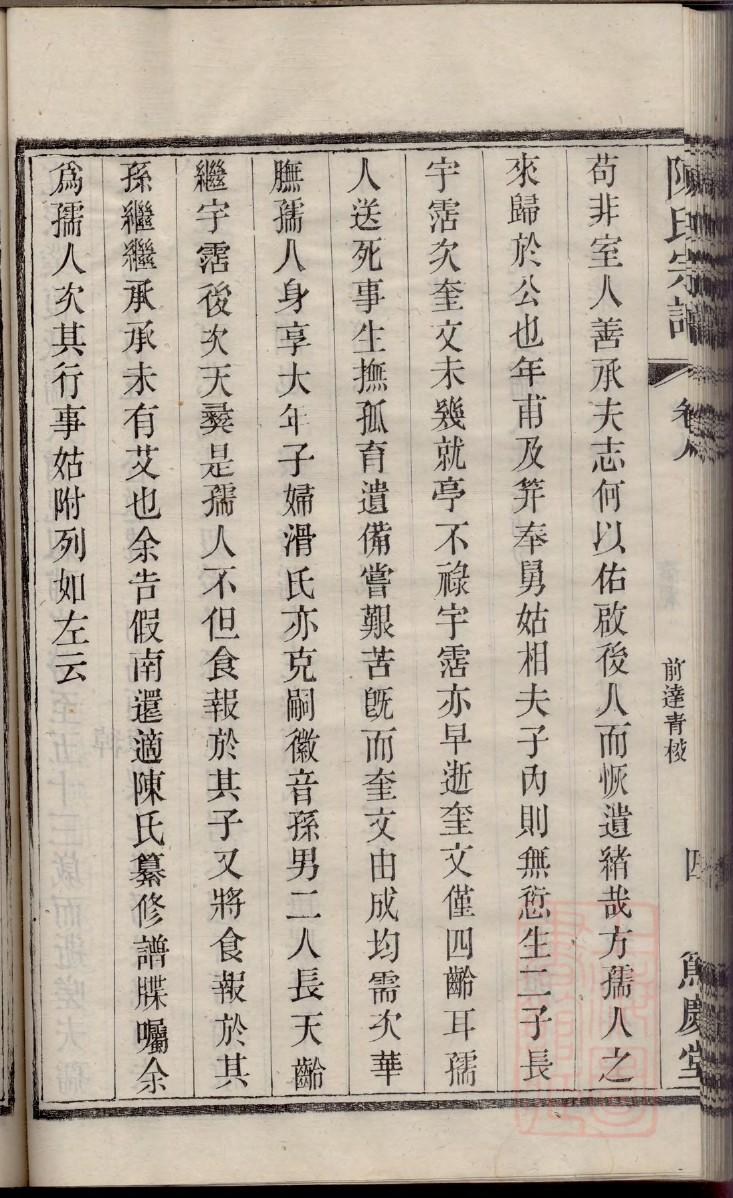 陳氏宗譜
卷八
前達青棱
四
篤慶堂
苟非室人善承夫志何以佑啟後人而恢遺緒哉方孺人之
來歸於公也年甫及笄奉舅姑相夫子內則無愆生二子長
宇霑次奎文未幾就亭不祿宇霑亦早逝奎文僅四齡耳孺
人送死事生撫孤育遺備嘗艱苦旣而奎文由成均需次華
膴孺人身享大年子婦滑氏亦克嗣徽音孫男二人長天齡
繼宇霑後次天彝是孺人不但食報於其子又將食報於其
孫繼繼承承未有艾也余告假南還適陳氏纂修譜牒囑余
爲孺人次其行事姑附列如左云